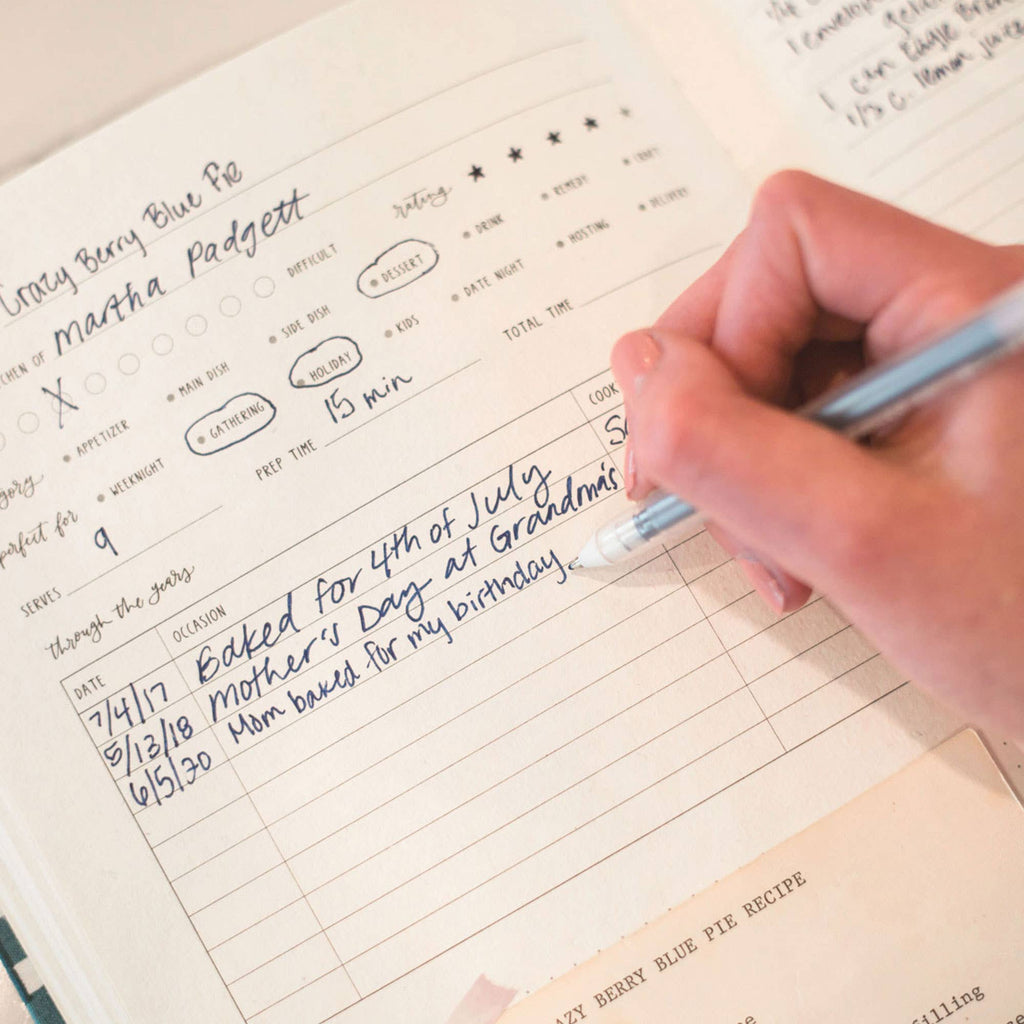 Crazy Berry Blue Pie
KITCHEN OF Martha Padgett
X DIFFICULT
rating ★ ★ ★ ★ ★
APPETIZER MAIN DISH SIDE DISH DESSERT DRINK REMEDY CRAFT
perfect for WEEKNIGHT GATHERING HOLIDAY KIDS DATE NIGHT HOSTING DELIVERY
SERVES 9 PREP TIME 15 min TOTAL TIME
through the years
DATE OCCASION COOK
7/4/17 Baked for 4th of July
5/13/18 Mother's Day at Grandma's
6/5/20 Mom baked for my birthday
1 envelope
1 can Eagle
1/3 c. lemon juice
BERRY BLUE PIE RECIPE
filling